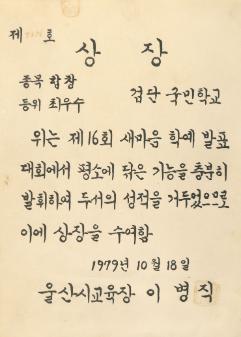 제 호
상 장
종목 합창
등위 최우수
검단 국민학교
위는 제16회 새마음 학예 발표
대회에서 평소에 닦은 기능을 충분히
발휘하여 두서의 성적을 거두었으므로
이에 상장을 수여함
1979년 10월 18일
울산시교육장 이 병 직